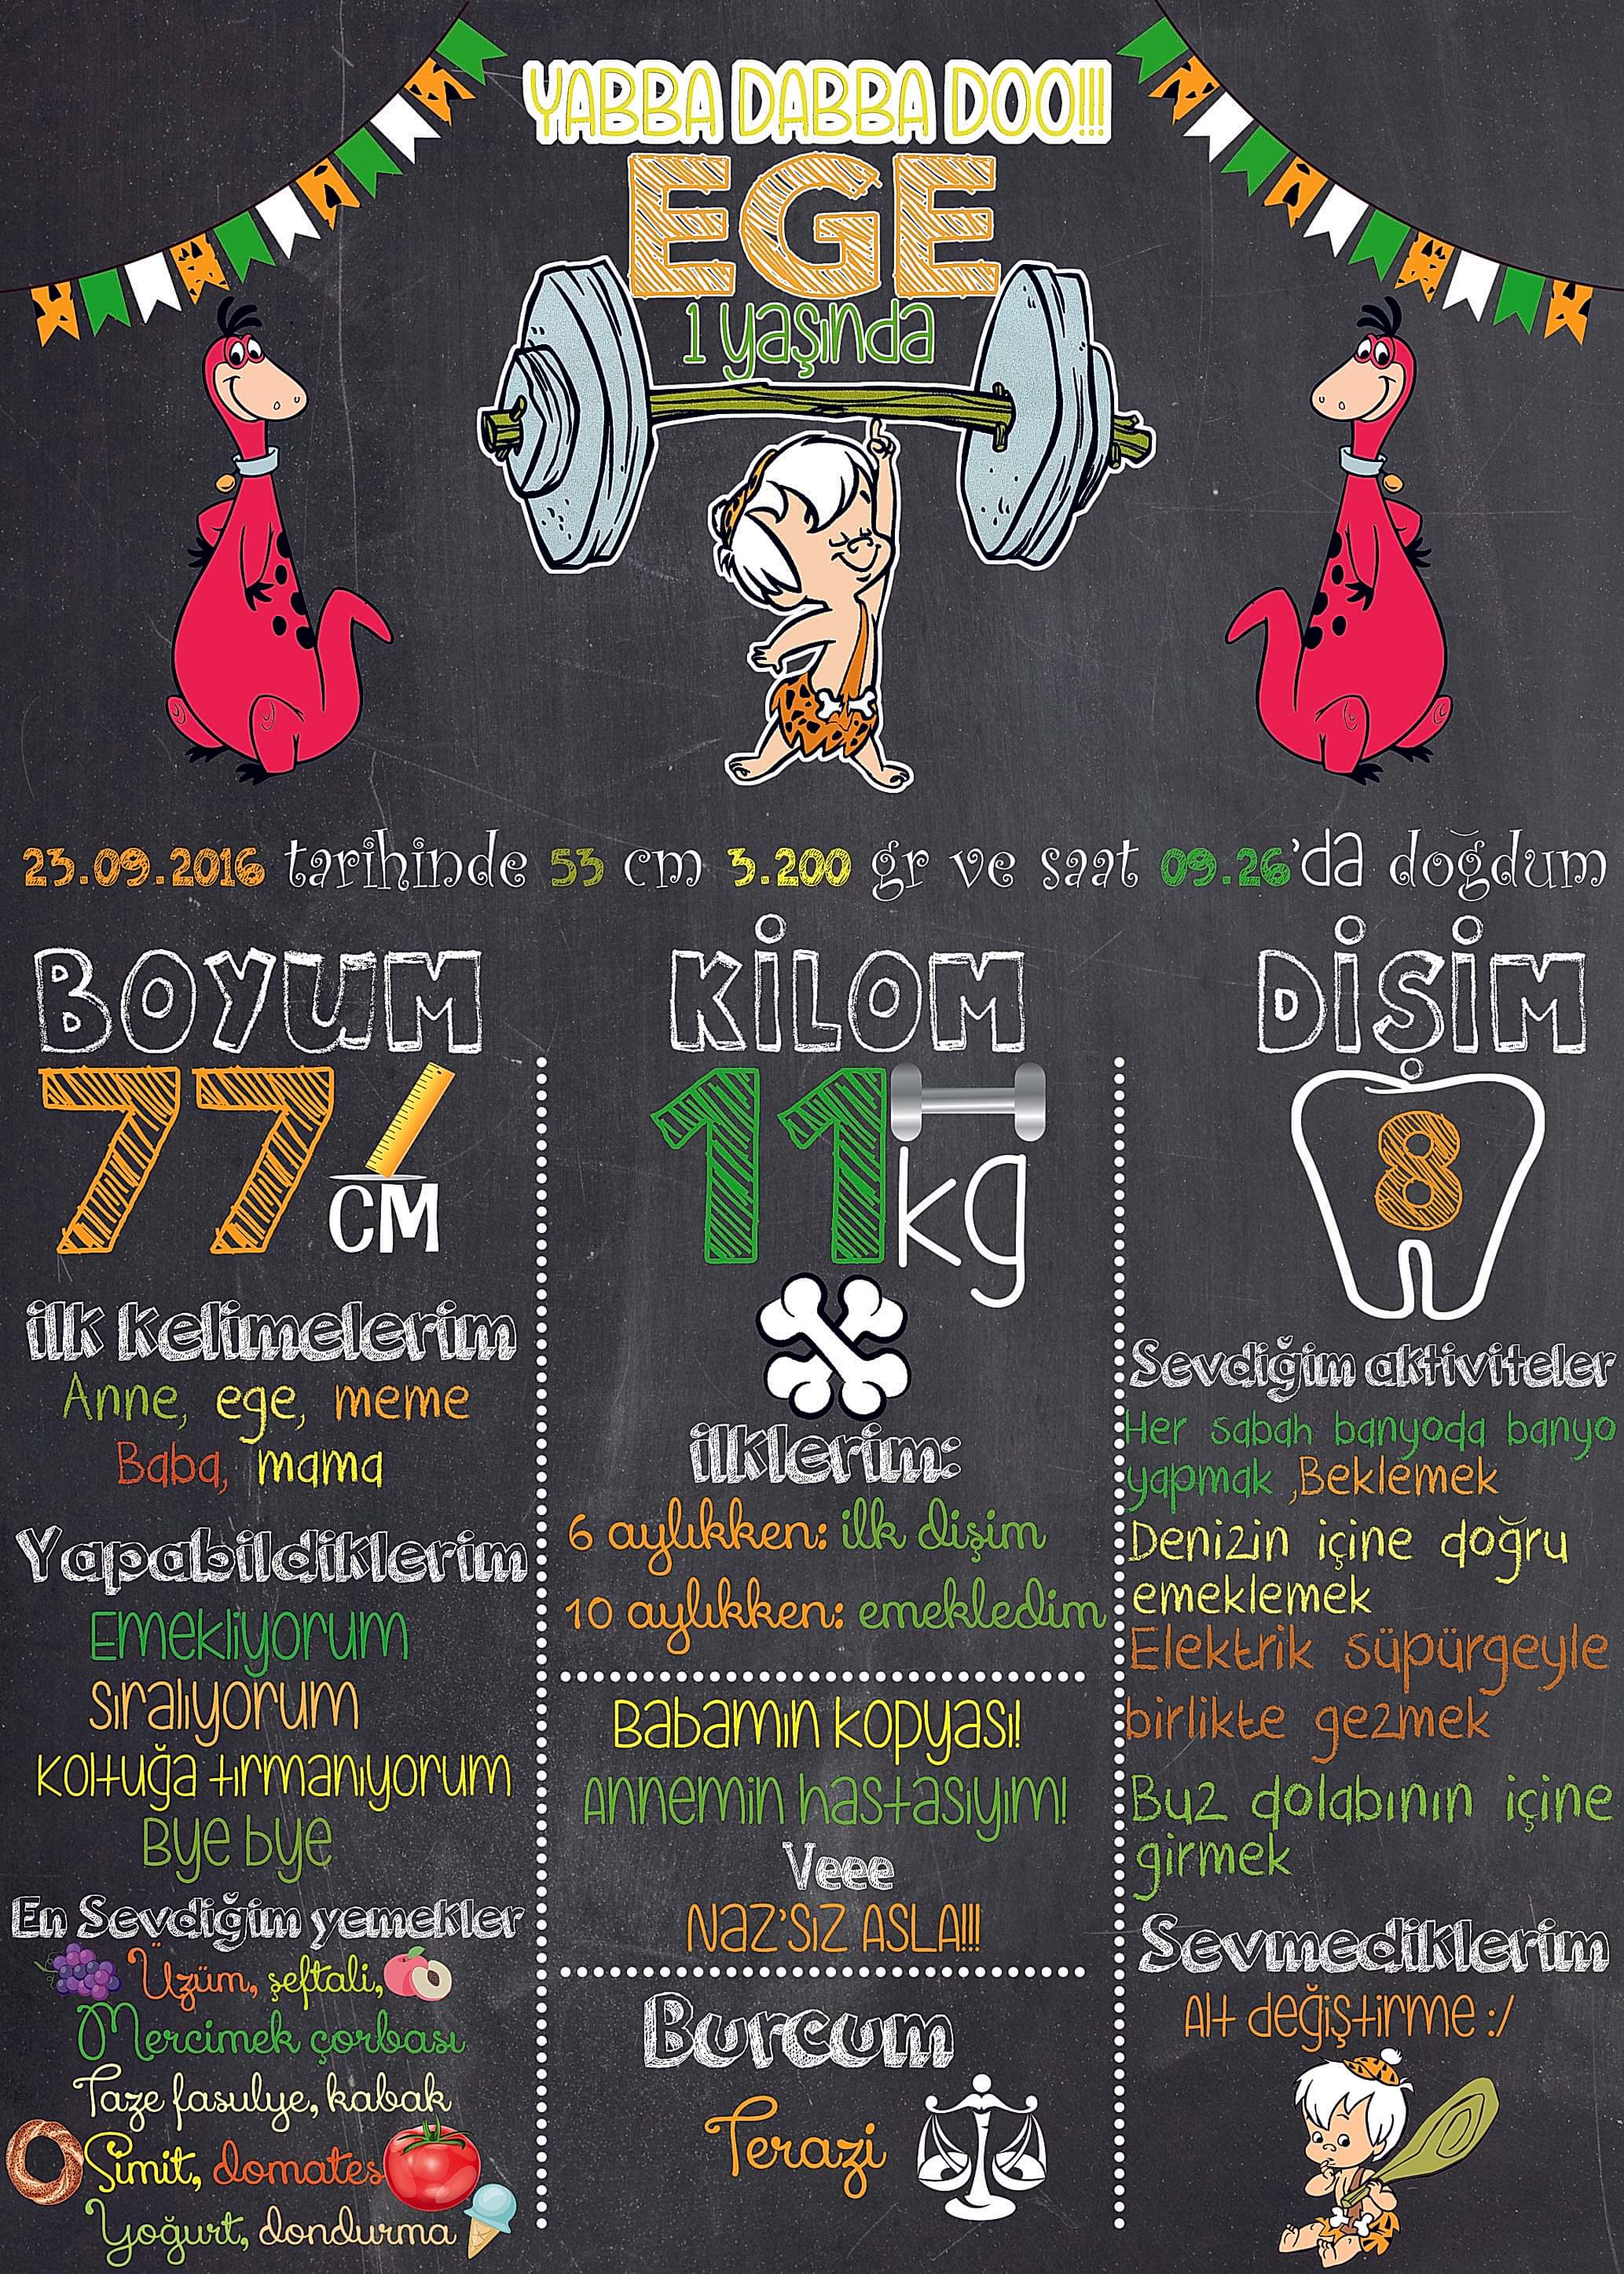 YABBA DABBA DOO!!!
EGE
1 yaşında
23.09.2016 tarihinde 53 cm 3.200 gr ve saat 09.26'da doğdum
BOYUM
77
CM
ilk kelimelerim
Anne, ege, meme
Baba, mama
Yapabildiklerim
Emekliyorum
sıralıyorum
koltuğa tırmanıyorum
Bye bye
En Sevdiğim yemekler
Üzüm, şeftali,
Mercimek çorbası
Taze fasulye, kabak
Simit, domates
Yoğurt, dondurma
KİLOM
11
kg
ilklerim:
6 aylıkken: ilk dişim
10 aylıkken: emekledim
Babamın kopyası!
Annemin hastasıyım!
Veee
NAZ'SIZ ASLA!!!
Burcum
Terazi
DİŞİM
8
Sevdiğim aktiviteler
Her sabah banyoda banyo
yapmak ,Beklemek
Denizin içine doğru
emeklemek
Elektrik süpürgeyle
birlikte gezmek
Buz dolabının içine
girmek
Sevmediklerim
Alt değiştirme :/